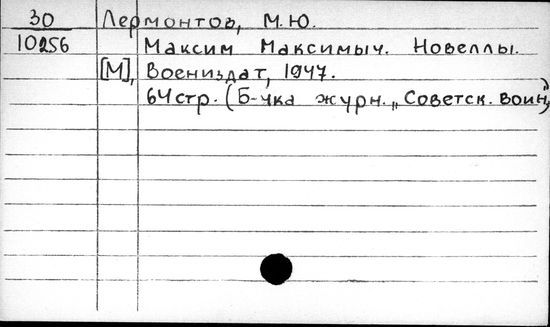 30 Лермонтов, М.Ю.
10256 Максим Максимыч. Новеллы.
[М], Воениздат, 1947.
64 стр. (Б-чка журн. „Советск. воин")